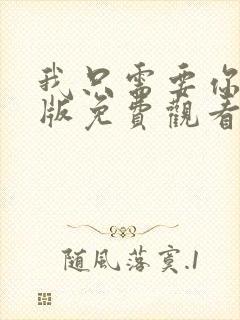 我只需要你
版免費觀看
随風落寞.1